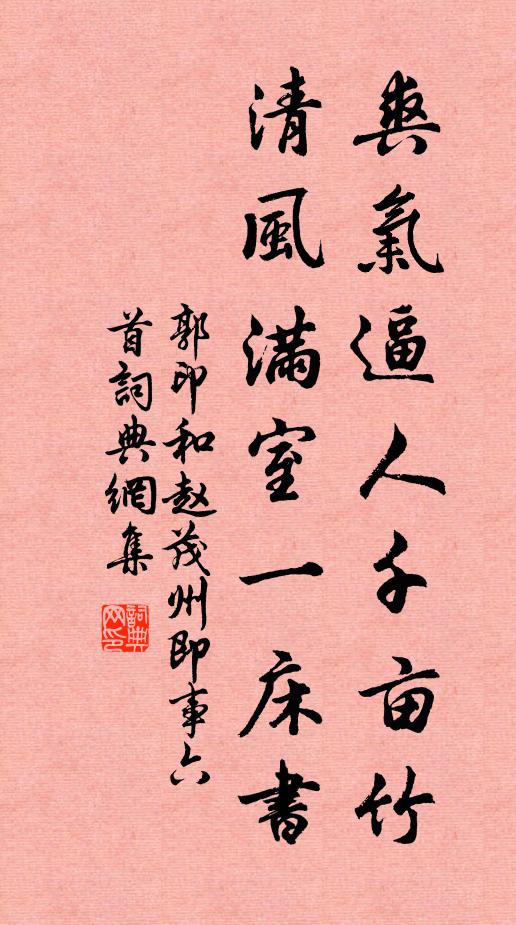 爽氣逼人千亩竹
清風满室一床書
郭印和赵茂州即事六
首詞典網集
詞典網印